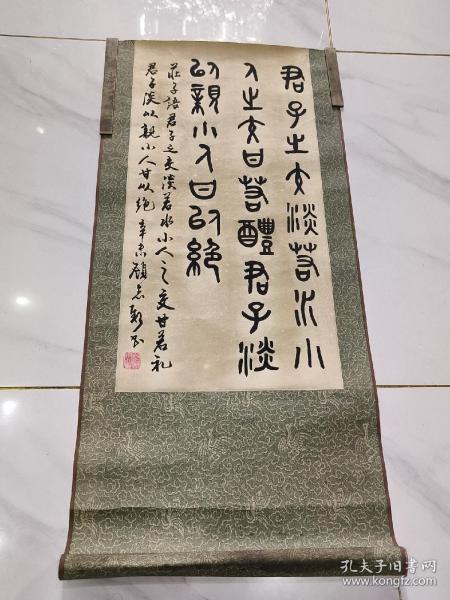 君子之交淡若水小
人之交甘若醴君子淡
以親小人甘以絕
莊子語君子之交淡若水小人之交甘若礼
君子淡以親小人甘以絕 辛未顧志新书
孔夫子旧书网
www.kongfz.com